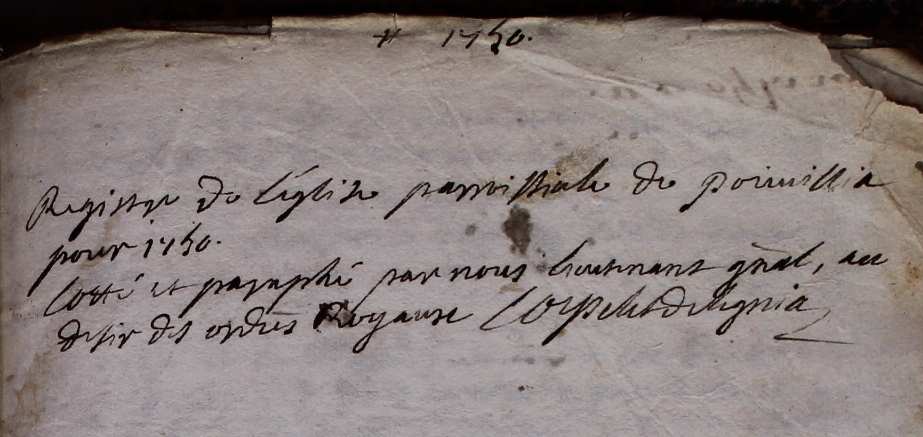 # 1750.
Registre de l'église parroissiale de poinvillia
pour 1750.
Cotté et paraphé par nous lieutenant gñal, au
desir des ordres Royaux